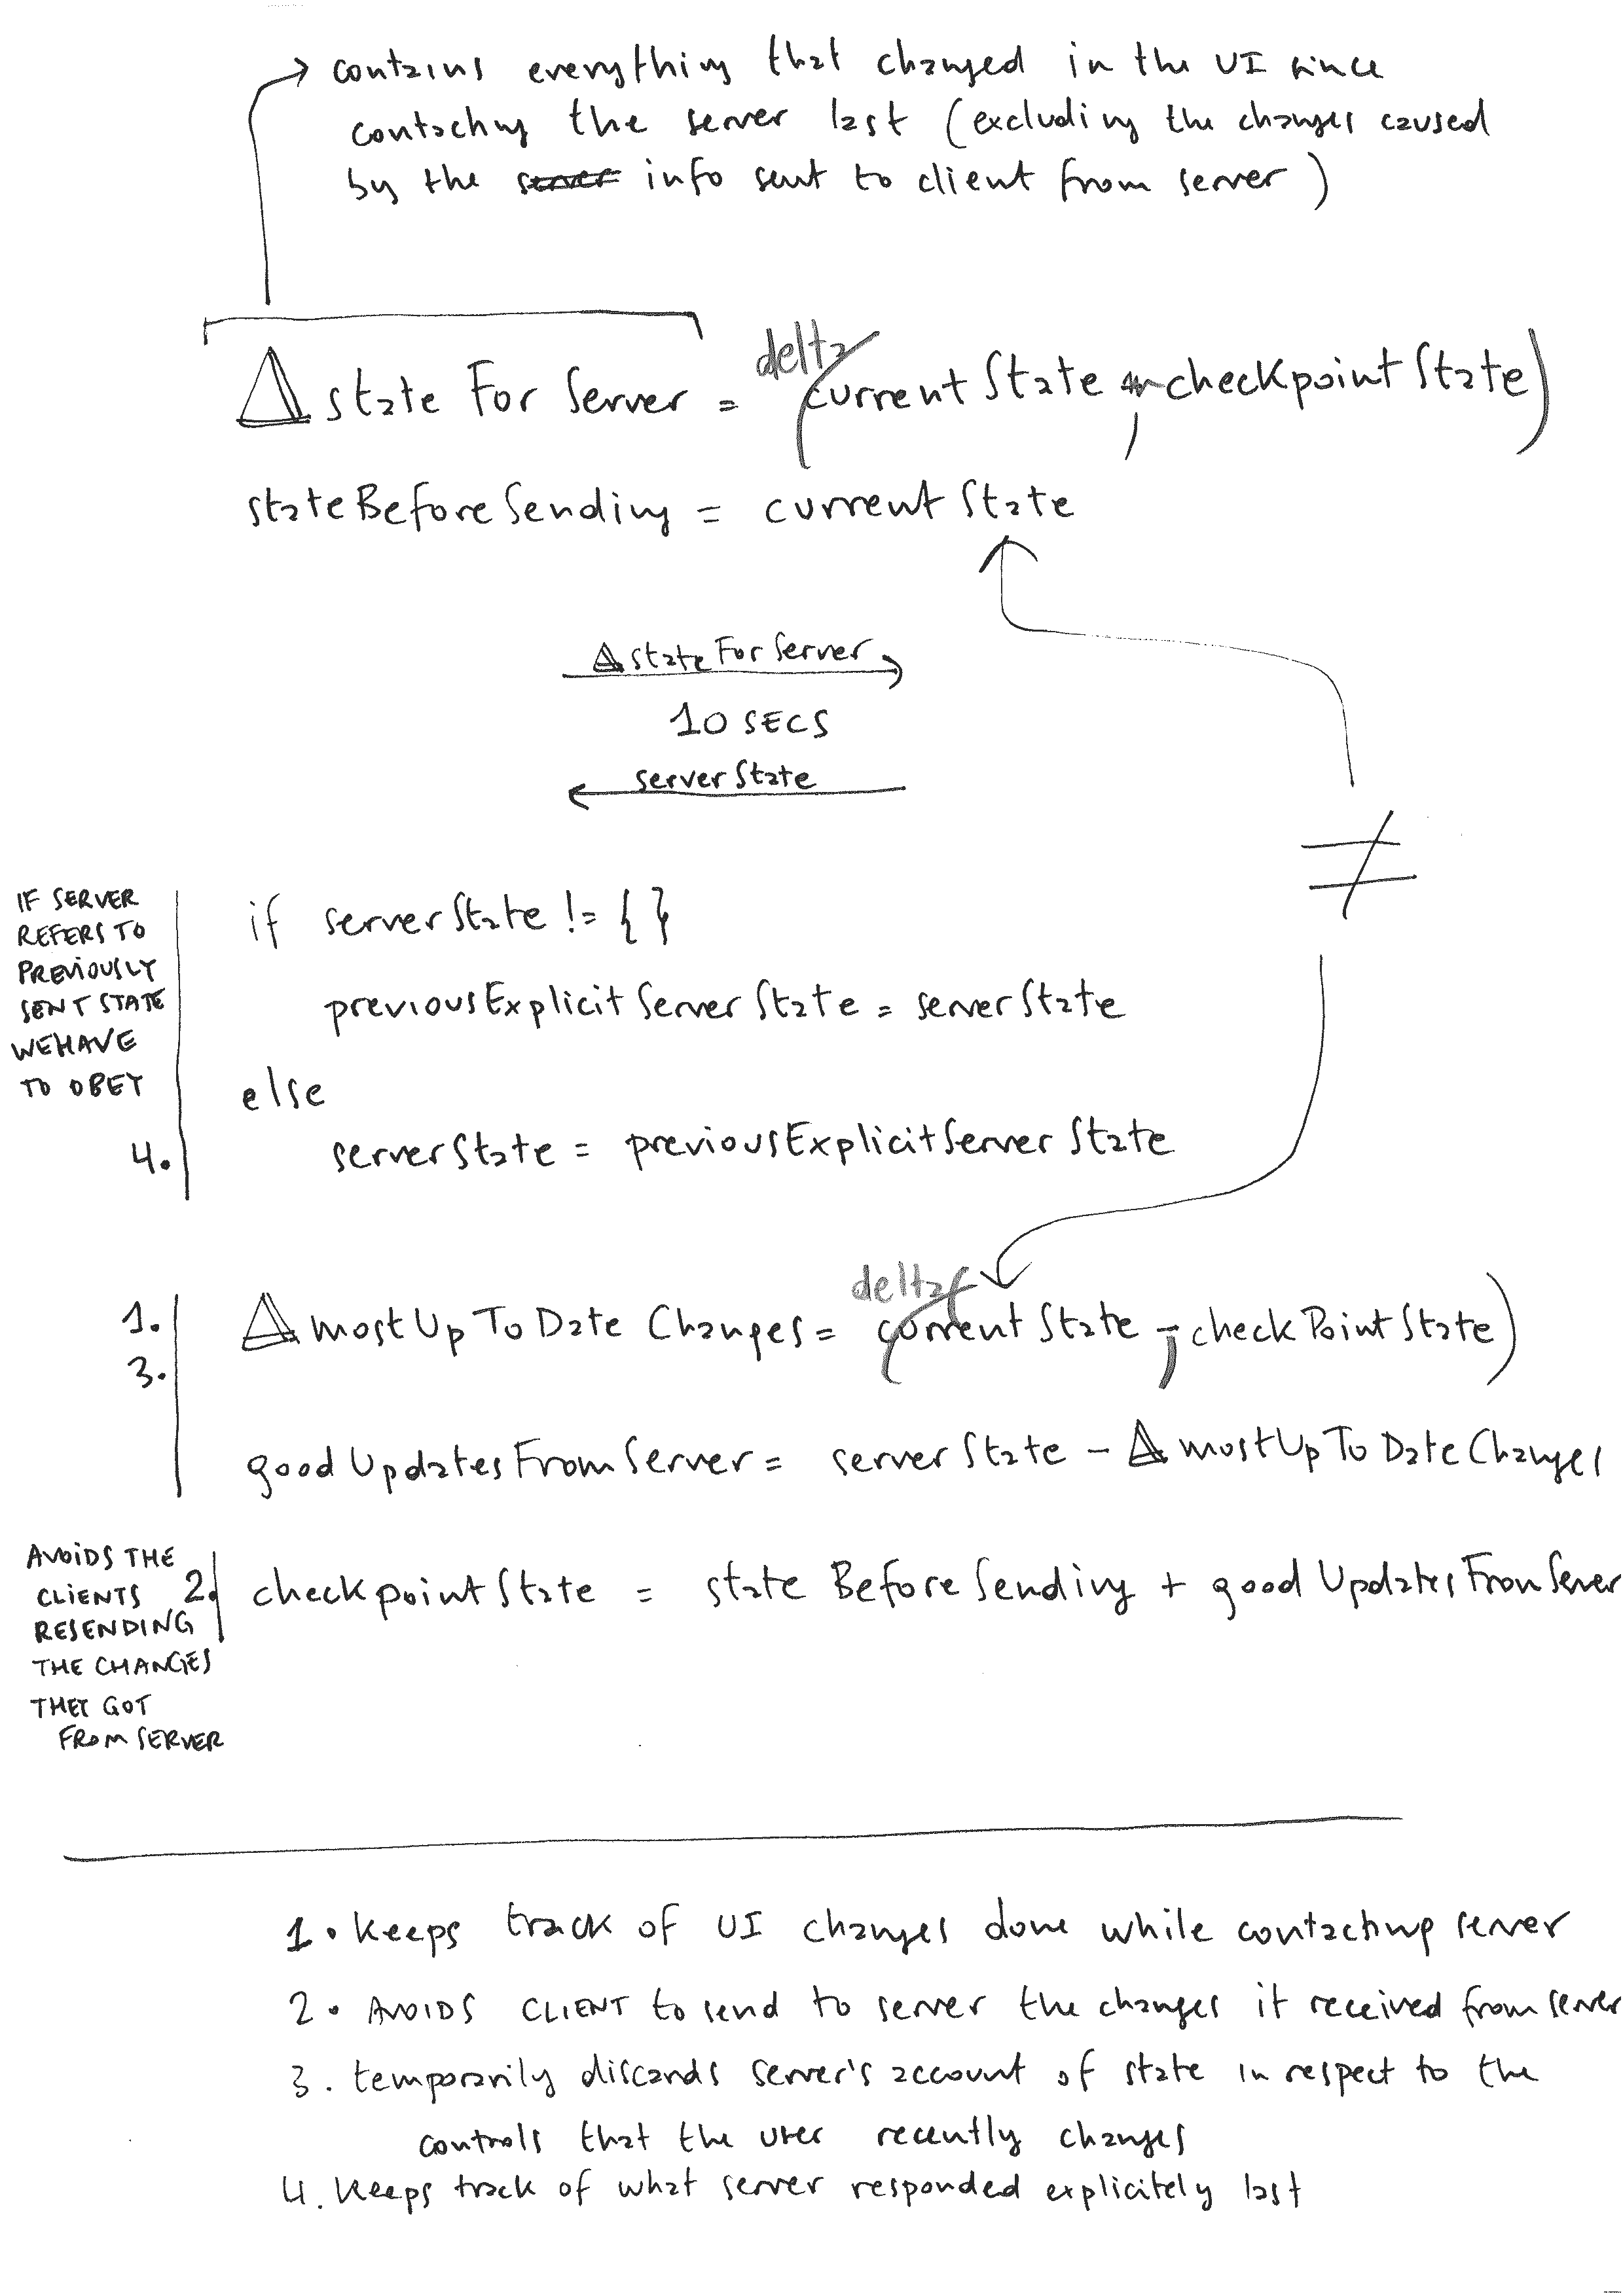 contains everything that changed in the UI since
contacting the server last (excluding the changes caused
by the server info sent to client from server)
Δ state For Server = delta(currentState , checkpointState)
stateBeforeSending = currentState
Δ stateForServer
10 SECS
serverState
≠
IF SERVER
REFERS TO
PREVIOUSLY
SENT STATE
WE HAVE
TO OBEY
4.
if serverState != { }
previousExplicitServerState = serverState
else
serverState = previousExplicitServerState
1.
3.
Δ mostUpToDateChanges = delta(currentState , checkPointState)
goodUpdatesFromServer = serverState - Δ mostUpToDateChanges
AVOIDS THE
CLIENTS
RESENDING
THE CHANGES
THEY GOT
FROM SERVER
2. checkpointState = stateBeforeSending + goodUpdatesFromServer
1. keeps track of UI changes done while contacting server
2. AVOIDS CLIENT to send to server the changes it received from server
3. temporarily discards server's account of state in respect to the
controls that the user recently changes
4. keeps track of what server responded explicitely last